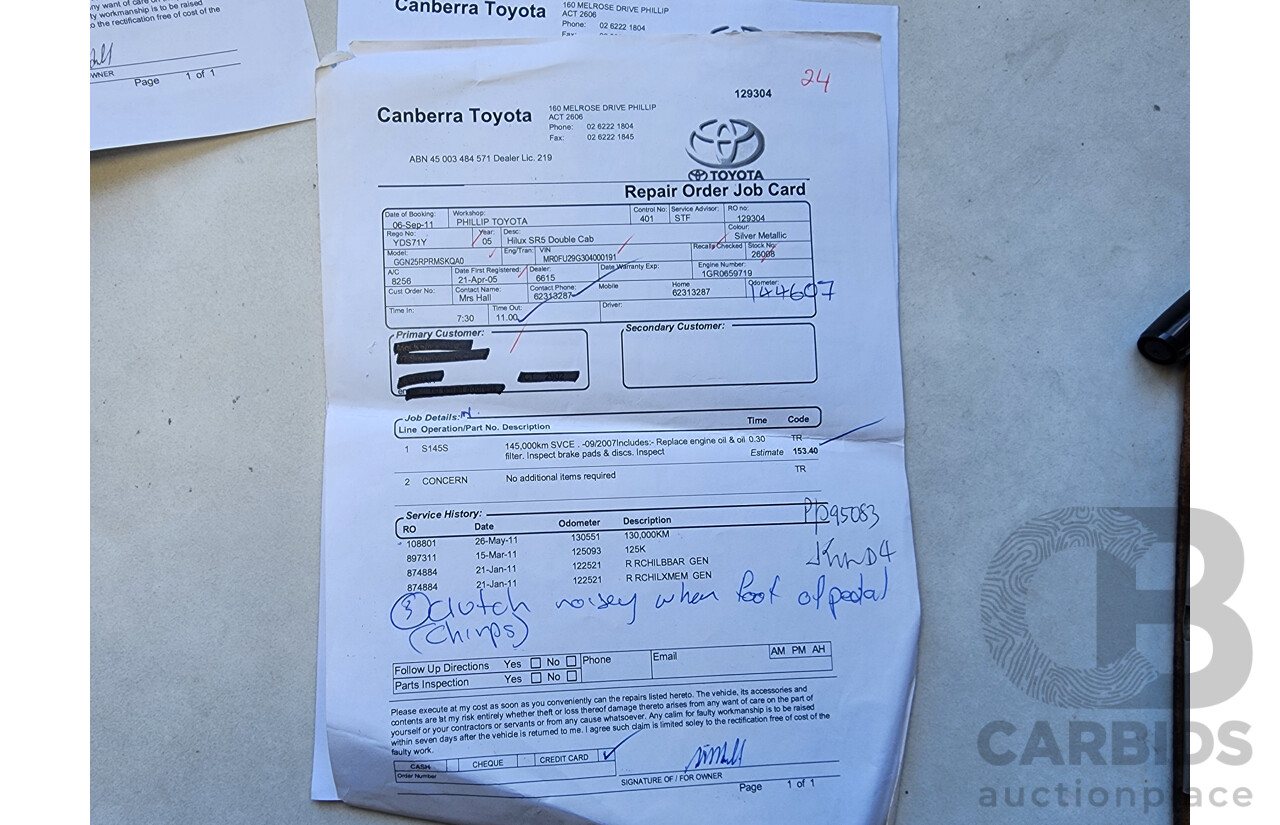 ny want of care on
ty workmanship is to be raised
o the rectification free of cost of the
WNER
Page 1 of 1
Canberra Toyota
160 MELROSE DRIVE PHILLIP
ACT 2606
Phone: 02 6222 1804
Fax:
24
129304
Canberra Toyota
160 MELROSE DRIVE PHILLIP
ACT 2606
Phone: 02 6222 1804
Fax: 02 6222 1845
ABN 45 003 484 571 Dealer Lic. 219
TOYOTA
Repair Order Job Card
Date of Booking: 06-Sep-11 Workshop: PHILLIP TOYOTA Control No: 401 Service Advisor: STF RO no: 129304
Rego No: YDS71Y Year: 05 Desc: Hilux SR5 Double Cab Colour: Silver Metallic
Model: GGN25RPRMSKQA0 Eng/Tran: VIN MR0FU29G304000191 Recalls Checked Stock No: 26008
A/C 8256 Date First Registered: 21-Apr-05 Dealer: 6615 Date Warranty Exp: Engine Number: 1GR0659719
Cust Order No: Contact Name: Mrs Hall Contact Phone: 62313287 Mobile Home 62313287 Odometer: 144607
Time In: 7:30 Time Out: 11.00 Driver:
Primary Customer:
Secondary Customer:
Job Details:
Line Operation/Part No. Description Time Code
1 S145S 145,000km SVCE . -09/2007Includes:- Replace engine oil & oil 0.30 TR
filter. Inspect brake pads & discs. Inspect Estimate 153.40
2 CONCERN No additional items required TR
Service History:
RO Date Odometer Description
108801 26-May-11 130551 130,000KM
897311 15-Mar-11 125093 125K
874884 21-Jan-11 122521 R RCHILBBAR GEN
874884 21-Jan-11 122521 R RCHILXMEM GEN
3 Clutch noisey when foot of pedal
(Chirps)
Follow Up Directions Yes No Phone Email AM PM AH
Parts Inspection Yes No
Please execute at my cost as soon as you conveniently can the repairs listed hereto. The vehicle, its accessories and
contents are lat my risk entirely whether theft or loss thereof damage thereto arises from any want of care on the part of
yourself or your contractors or servants or from any cause whatsoever. Any calim for faulty workmanship is to be raised
within seven days after the vehicle is returned to me. I agree such claim is limited soley to the rectification free of cost of the
faulty work.
CASH CHEQUE CREDIT CARD
Order Number
SIGNATURE OF / FOR OWNER
Page 1 of 1
CB
CARBIDS
auctionplace